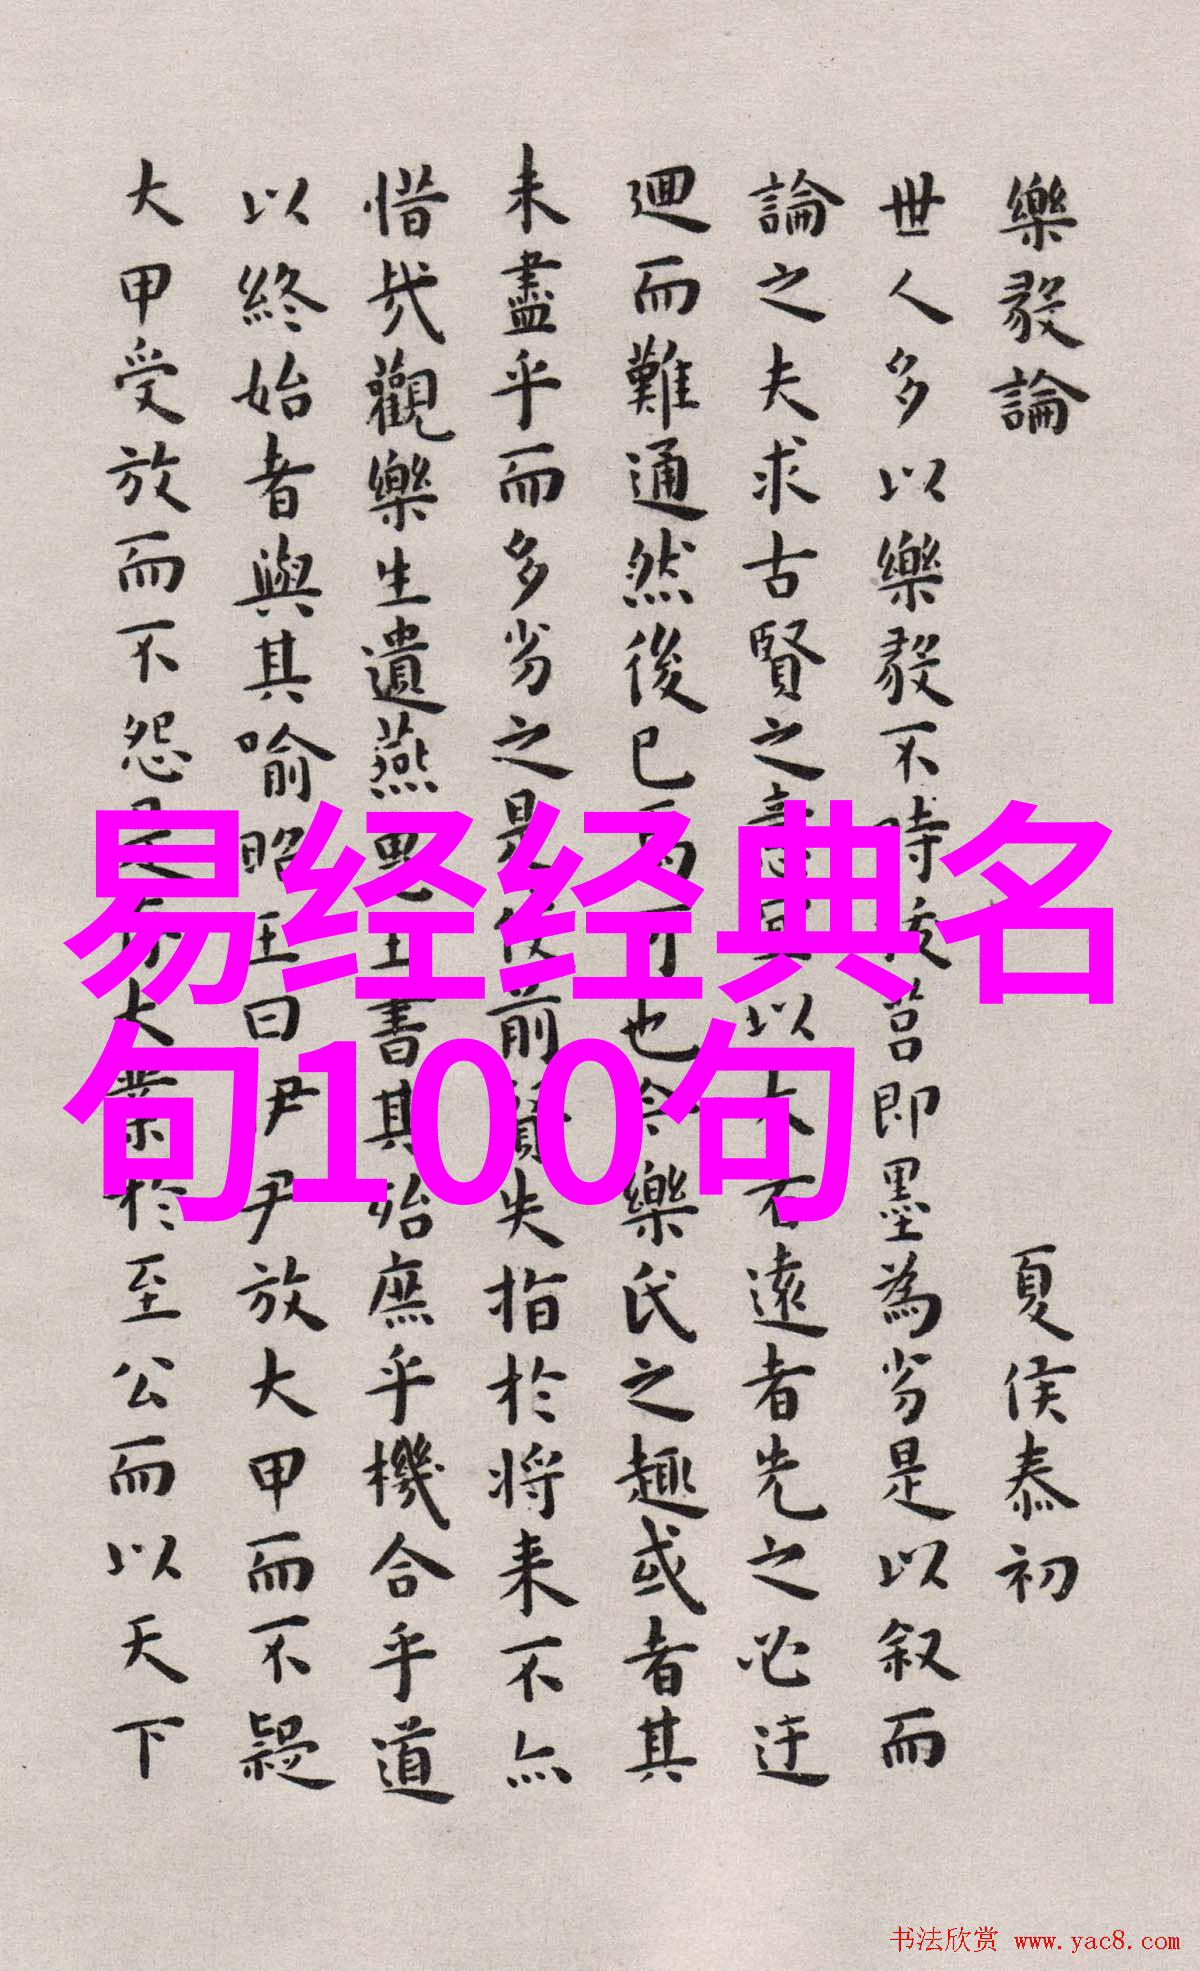 樂毅論 夏侯泰初
世人多以樂毅不時拔莒即墨為劣是以叙而
論之夫求古賢之意宜以大者遠者先之必迂
迴而難通然後已焉可也今樂氏之趣或者其
未盡乎而多劣之是使前賢失指於將来不亦
惜哉觀樂生遺燕惠王書其殆庶乎機合乎道
以終始者與其喻昭王曰伊尹放大甲而不疑
大甲受放而不怨是存大業於至公而以天下
易经经典名
句100句
书法欣赏 www.yac8.com